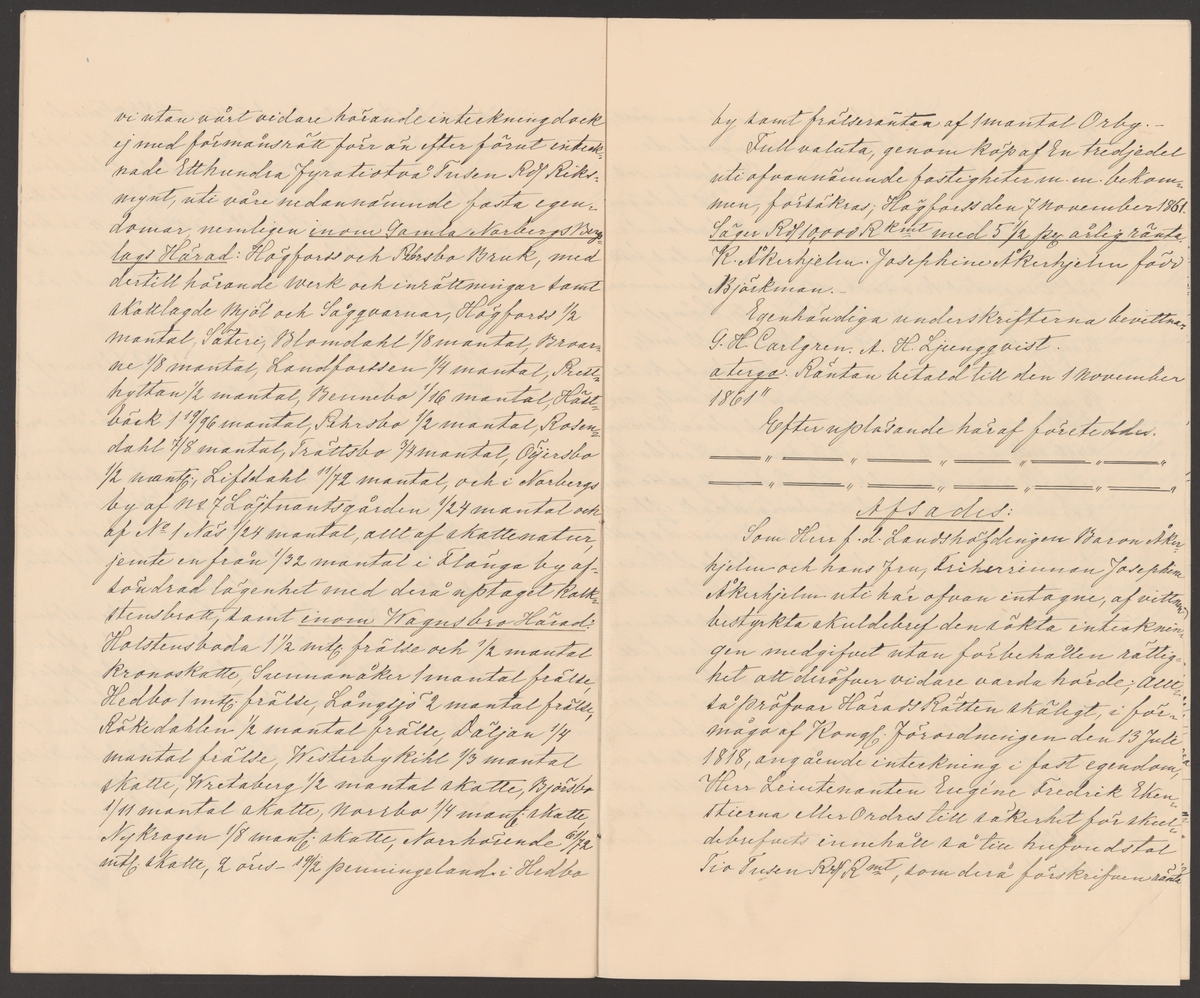 vi utan vårt vidare hörande inteckning dock
ej med förmånsrätt förr än efter förut inteck-
nade Etthundra Fyratiotvå Tusen Rdr Riks-
mynt, uti våre nedannämnde fasta egen-
domar, nemligen inom Gamla Norbergs Berg-
lags Härad: Högfors och Persbo Bruk, med
dertill hörande werk och inrättningar samt
skattlagde Mjöl och Sågqvarnar, Högforss 1/2
mantal, Säteri, Blomdahl 1/8 mantal, Broar-
ne 1/8 mantal, Landforssen 1/4 mantal, Prest-
hyttan 1/2 mantal, Bennebo 1/16 mantal, Häst-
bäck 1 19/96 mantal, Pehrsbo 1/2 mantal, Rosen-
dahl 7/8 mantal, Trättsbo 3/4 mantal, Öijersbo
1/2 mantl:, Lifsdahl 11/72 mantal, och i Norbergs
by af No 7 Löjtnantsgården 1/24 mantal och
af No 1 Näs 1/24 mantal, allt af skattenatur,
jemte en från 1/32 mantal i Flänga by af-
söndrad lägenhet med derå uptaget Kalk-
stensbrott, samt inom Wagnsbro Härad:
Holstensboda 1 1/2 mtl frälse och 1/2 mantal
kronoskatte, Sunnanåker 1 mantal frälse,
Hedbo 1 mtl frälse, Långsjö 2 mantal frälse,
Rökedahlen 1/2 mantal frälse, Däljan 1/4
mantal frälse, Wisterbykihl 1/3 mantal
skatte, Wretaberg 1/2 mantal skatte, Björsbo
1/11 mantal skatte, Norrbo 1/4 mantl skatte,
Nykrogen 1/8 mantl: skatte, Norrhörende 61/72
mtl skatte, 2 öres- 19/2 penningeland i Hedbo
by samt frälseräntan af 1 mantal Orby.-
Full valuta, genom köp af En tredjedel
uti ofvannämnde fastigheter m. m. bekom-
men, försäkras; Högforss den 7 November 1861.
Säger Rdr 10,000 Rkmt med 5 1/2 p% årlig ränta.
K. Åkerhjelm. Josephine Åkerhjelm född
Björkman.-
Egenhändiga underskrifterna bevittna:
G. H. Carlgren. A. H. Ljungqvist.
aterga. Räntan betald till den 1 November
1861"
Efter upläsande häraf företeddes.
Afsades:
Som Herr f. d. Landshöfdingen Baron Åker-
hjelm och hans Fru, Friherrinnan Josephine
Åkerhjelm uti här ofvan intagne, af vittnen
bestyrkta skuldebref den sökta intecknin-
gen medgifvet utan förbehållen rättig-
het att deröfver vidare varda hörde; Allt-
så pröfvar Härads Rätten skäligt, i för-
mågo af Kongl. Förordningen den 13 Juli
1818, angående inteckning i fast egendom,
Herr Leiutenanten Eugéne Fredrik Eken-
stierna eller Ordres till säkerhet för skul-
debrefvets innehåll så till hufvudstol
Tio Tusen Rdr Rmt, som derå förskrifven ränta